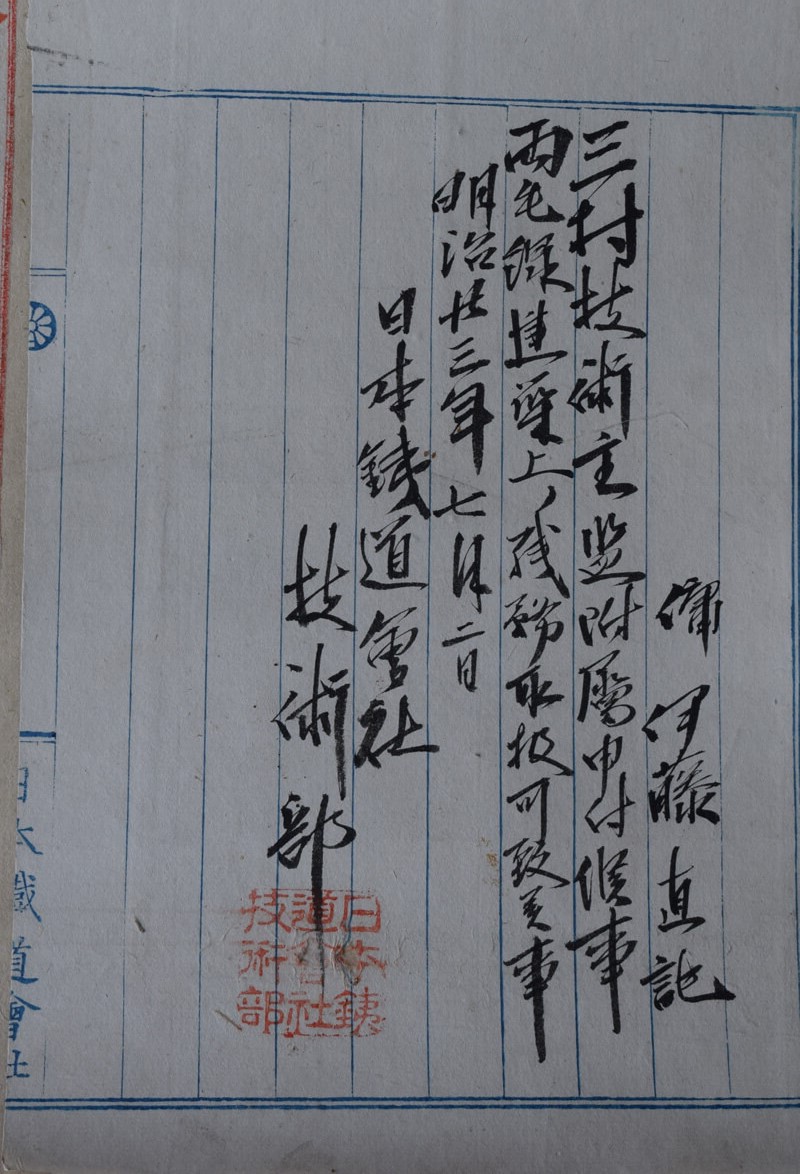 傭 伊藤直記
三村技術主監附属申付候事
両毛線建築上ノ残務取扱可致候事
明治廿三年七月二日
日本鉄道會社
技術部
日本鉄
道會社
技術部
日本鐵道會社